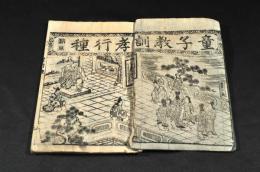 童子教訓
孝行種